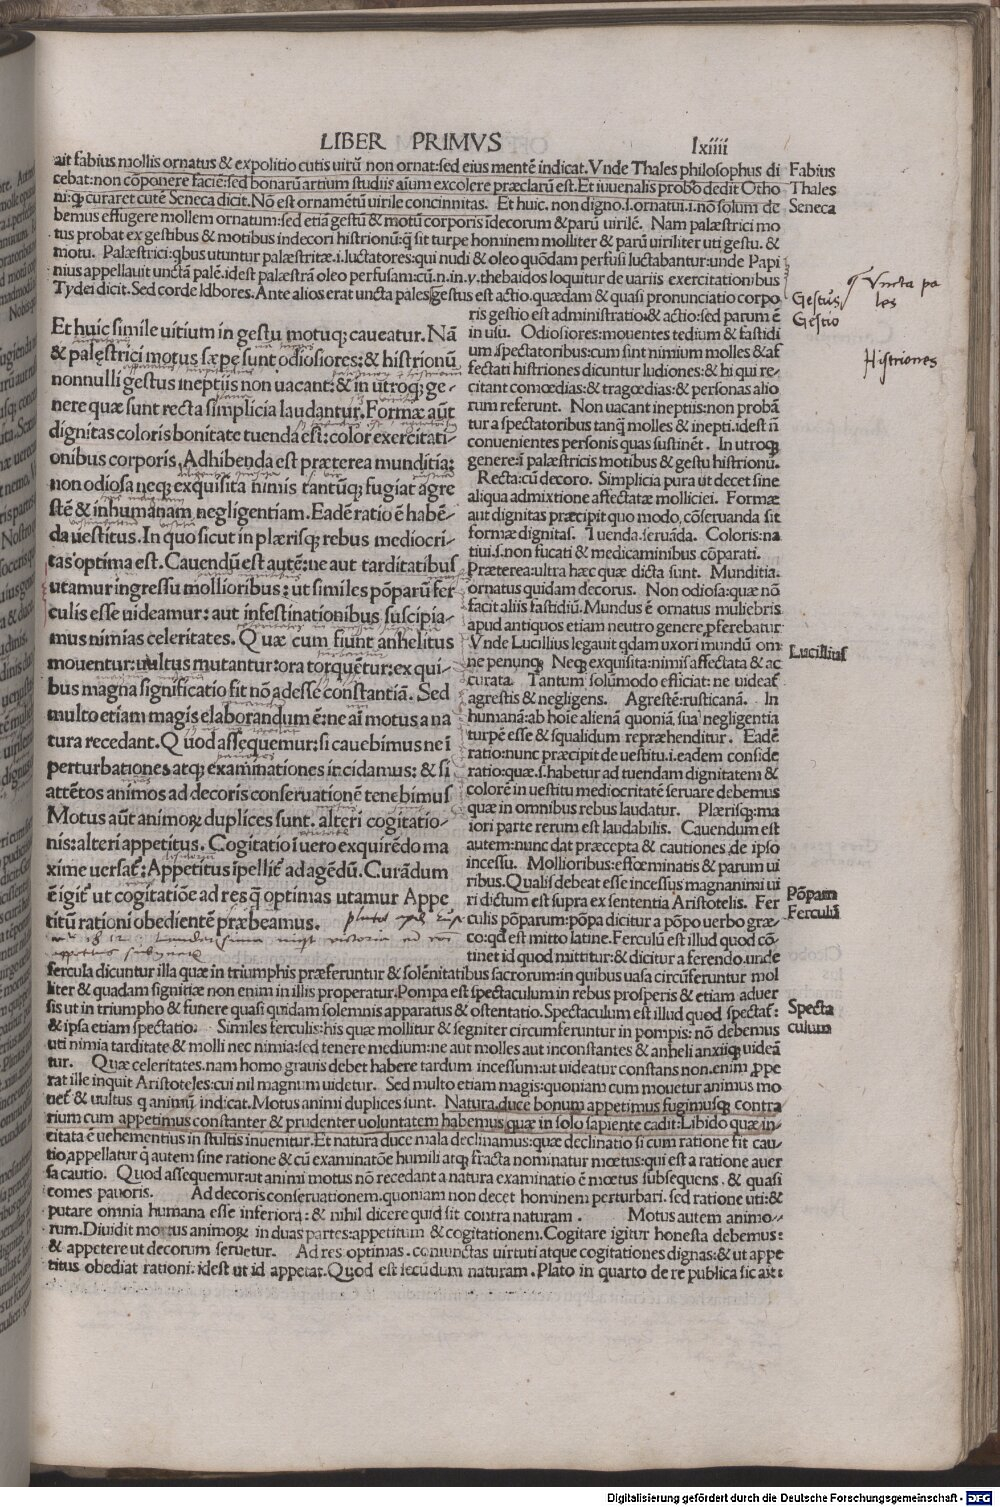 LIBER PRIMVS lxiiii
ait fabius mollis ornatus & expolitio cutis uirū non ornat:sed eius mentē indicat.Vnde Thales philosophus di
cebat:non cōponere faciē:sed bonarū artium studiis aīum excolere præclarū est.Et iuuenalis probo dedit Otho
ni:ꝙ curaret cutē Seneca dicit.Nō est ornamētū uirile concinnitas. Et huic.non digno.s.ornatui.i.nō solum de
bemus effugere mollem ornatum:sed etiā gestū & motū corporis īdecorum & parū uirilē. Nam palæstrici mo
tus probat ex gestibus & motibus indecori histrionū:ꝙ sit turpe hominem molliter & parū uiriliter uti gestu. &
motu. Palæstrici:qbus utuntur palæstritæ.i.luctatores:qui nudi & oleo quōdam perfusi luctabantur:unde Papi
nius appellauit unctā palē.idest palæstrā oleo perfusam:cū.n.in.v.thebaidos loquitur de uariis exercitationibus
Tydei dicit.Sed corde labores.Ante alios erat uncta pales gestus est actio.quædam & quasi pronunciatio corpo
Fabius
Thales
Seneca
Gestus
Gestio
Vncta pa
les
Histriones
Et huic simile uitium in gestu motuq; caueatur. Nā
& palęstrici motus sæpe sunt odiosiores:& histrionū
nonnulli gestus ineptiis non uacant:& in utroq; ge-
nere quæ sunt recta simplicia laudantur.Formæ aūt
dignitas coloris bonitate tuenda est:color exercitati-
onibus corporis.Adhibenda est præterea munditia:
non odiosa neq; exquisita nimis tantūq; fugiat agre
stē & inhumanam negligentiam. Eadē ratio ē habē-
da uestitus.In quo sicut in plærisq; rebus mediocri-
tas optima est.Cauendū est autē:ne aut tarditatibus
utamur ingressu mollioribus:ut similes pōparū fer
culis esse uideamur:aut infestinationibus suscipia-
mus nimias celeritates.Quæ cum fiunt anhelitus
mouentur:uultus mutantur:ora torquētur:ex qui-
bus magna significatio fit nō adesse constantiā. Sed
multo etiam magis elaborandum ē:ne aī motus a na
tura recedant.Quod assequemur:si cauebimus ne ī
perturbationes atq; examinationes incidamus:& si
attētos animos ad decoris conseruationē tenebimus
Motus aūt animoꝝ duplices sunt. alteri cogitatio-
nis:alteri appetitus.Cogitatio ī uero exquirēdo ma
xime uersat̄:Appetitus īpellit̄ ad agēdū.Curādum
ē igit̄ ut cogitatiōe ad res q̄ optimas utamur Appe
titū rationi obedientē præbeamus.
ris gestio est administratio & actio:sed parum ē
in usu. Odiosiores:mouentes tedium & fastidi
um spectatoribus:cum sint nimium molles & af
fectati histriones dicuntur ludiones:& hi qui re-
citant comœdias:& tragœdias:& personas alio
rum referunt. Non uacant ineptiis:non probā
tur a spectatoribus tanq̄ molles & inepti.idest n̄
conuenientes personis quas sustinēt. In utroq;
genere:ī palæstricis motibus & gestu histrionū.
Recta:cū decoro. Simplicia pura ut decet sine
aliqua admixtione affectatæ molliciei. Formæ
aut dignitas præcipit quo modo,cōseruanda sit
formæ dignitas. Tuenda.seruāda. Coloris:na
tiui.s.non fucati & medicaminibus cōparati.
Præterea:ultra hæc quæ dicta sunt. Munditia.
ornatus quidam decorus. Non odiosa:quæ nō
facit aliis fastidiū.Mundus ē ornatus muliebris
apud antiquos etiam neutro genere ꝓferebatur
Vnde Lucillius legauit qdam uxori mundū om
ne penunq; Neq; exquisita:nimis affectata & ac
curata. Tantum solūmodo efficiat:ne uideat̄
agrestis & negligens. Agrestē:rusticanā. In
humanā:ab hoīe alienā quoniā.sua negligentia
turpē esse & squalidum repræhenditur. Eadē
ratio:nunc præcipit de uestitu.i.eadem conside
ratio:quæ.s.habetur ad tuendam dignitatem &
colorē in uestitu mediocritatē seruare debemus
quæ in omnibus rebus laudatur. Plærisq;:ma
iori parte rerum est laudabilis. Cauendum est
autem:nunc dat præcepta & cautiones de ipso
incessu. Mollioribus:effœminatis & parum ui
ribus.Qualis debeat esse incessus magnanimi ui
ri dictum est supra ex sententia Aristotelis. Fer
culis pōparum:pōpa dicitur a pōpo uerbo græ-
co:qd est mitto latine.Ferculū est illud quod cō-
tinet id quod mittitur:& dicitur a ferendo.unde
Lucillius
Pōpam
Ferculū
fercula dicuntur illa quæ in triumphis præferuntur & solēnitatibus sacrorum:in quibus uasa circūferuntur mol
liter & quadam signitiæ non enim in illis properatur.Pompa est spectaculum in rebus prosperis & etiam aduer
sis ut in triumpho & funere quasi quidam solemnis apparatus & ostentatio.Spectaculum est illud quod spectat̄:
& ipsa etiam spectatio. Similes ferculis:his quæ mollitur & segniter circumferuntur in pompis:nō debemus
uti nimia tarditate & molli nec nimia:sed tenere medium:ne aut molles aut inconstantes & anheli anxiiq; uideā
tur. Quæ celeritates.nam homo grauis debet habere tardum incessum:ut uideatur constans non.enim ꝓpe
rat ille inquit Aristoteles:cui nil magnum uidetur. Sed multo etiam magis:quoniam cum mouetur animus mo
uet̄ & uultus q animū indicat.Motus animi duplices sunt. Natura.duce bonum appetimus fugimusq; contra
rium cum appetimus constanter & prudenter uoluntatem habemus quæ in solo sapiente cadit:Libido quæ in-
citata ē uehementius in stultis inuenitur.Et natura duce mala declinamus:quæ declinatio si cum ratione fit cau-
tio appellatur q̄ autem sine ratione & cū examinatōe humili atq; fracta nominatur mœtus:qui est a ratione auer
sa cautio. Quod assequemur:ut animi motus nō recedant a natura examinatio ē mœtus subsequens. & quasi
comes pauoris. Ad decoris conseruationem.quoniam non decet hominem perturbari.sed ratione uti:&
putare omnia humana esse inferiora:& nihil dicere quid sit contra naturam. Motus autem animo-
rum.Diuidit motus animoꝝ in duas partes:appetitum & cogitationem.Cogitare igitur honesta debemus:
& appetere ut decorum seruetur. Ad res optimas.coniunctas uirtuti atque cogitationes dignas:& ut appe
titus obediat rationi:idest ut id appetat.Quod est secūdum naturam.Plato in quarto de re publica sic ait:
Specta
culum
Digitalisierung gefördert durch die Deutsche Forschungsgemeinschaft - DFG